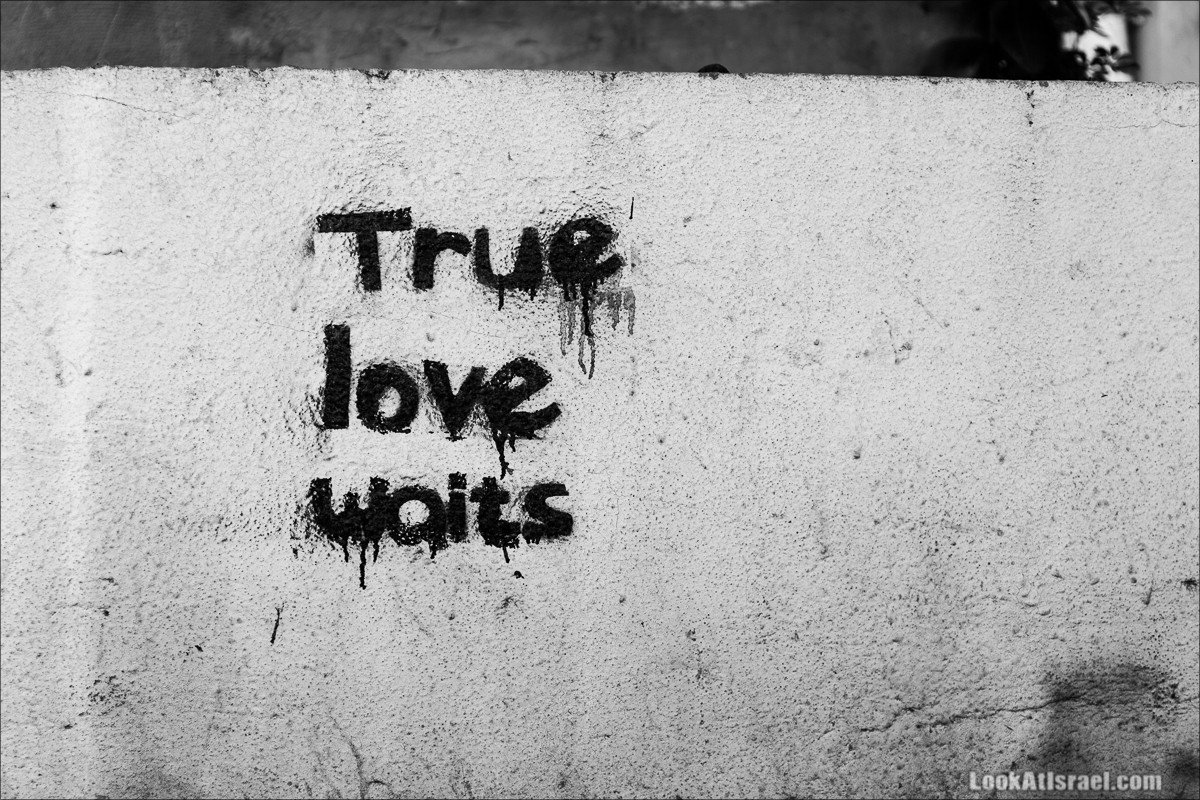 True
love
waits
LookAtIsrael.com